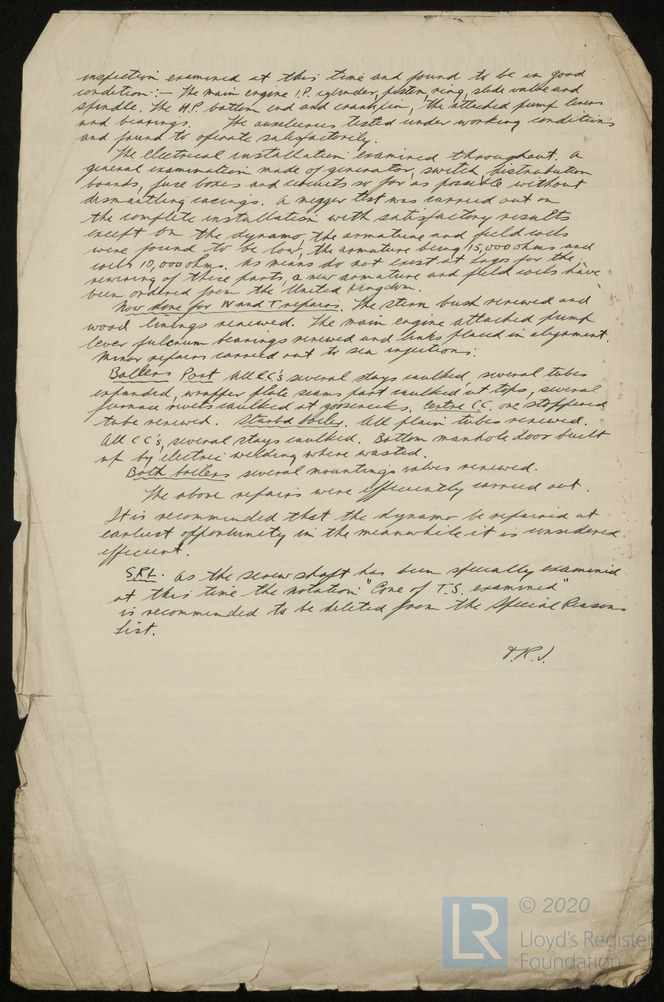 inspection examined at this time and found to be in good
condition:- The main engine I.P. cylinder, piston, ring, slide valve and
spindle. The H.P. bottom end and crankpin, the attached pump levers
and bearings. The auxiliaries tested under working conditions
and found to operate satisfactorily.
The electrical installation examined throughout, a
general examination made of generator, switch, distribution
boards, fuse boxes and circuits so far as possible without
dismantling casings. A megger test was carried out on
the complete installation with satisfactory results
except on the dynamo, the armature and field coils
were found to be low, the armature being 15,000 ohms and
coils 10,000 ohms. As means do not exist at Lagos for the
rewiring of these parts, a new armature and field coils have
been ordered from the United Kingdom.
Now done for W and T repairs. The stern bush renewed and
wood linings renewed. The main engine attached pump
lever fulcrum bearings renewed and links placed in alignment.
Minor repairs carried out to sea injections.
Boilers Port All CC's several stays caulked, several tubes
expanded, wrapper plate seams part caulked at tops, several
furnace rivets caulked at goosenecks. Centre C.C. one stoppered
tube renewed. Starbd boiler. All plain tubes renewed.
All CC's, several stays caulked. Bottom manhole door built
up by electric welding where wasted.
Both boilers several mountings valves renewed.
The above repairs were efficiently carried out.
It is recommended that the dynamo be repaired at
earliest opportunity in the meanwhile it is considered
efficient.
S.R.L. As the screwshaft has been specially examined
at this time the notation "Cone of T.S. examined"
is recommended to be deleted from the Special Reasons
List.
© 2020
LR
Lloyd's Register
Foundation